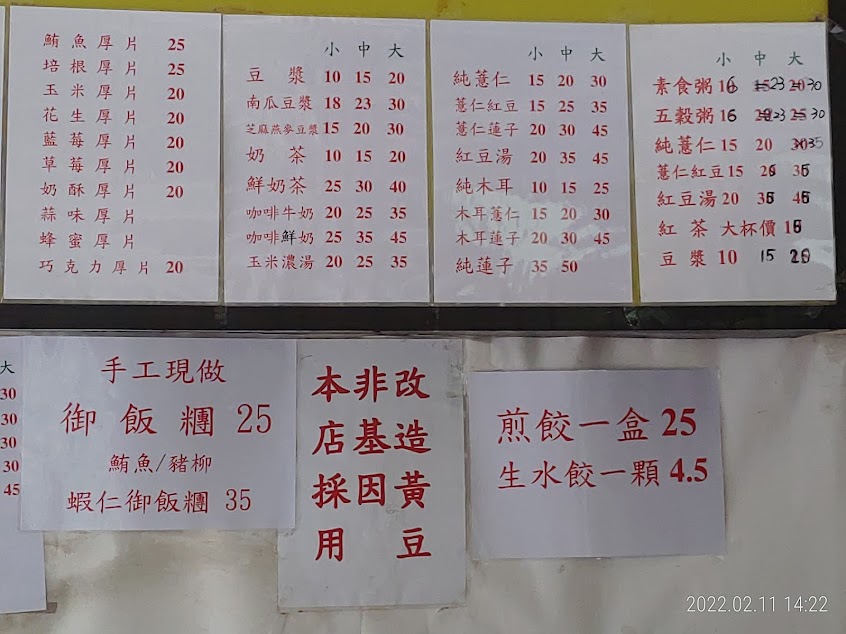 鮪魚厚片 25
培根厚片 25
玉米厚片 20
花生厚片 20
藍莓厚片 20
草莓厚片 20
奶酥厚片 20
蒜味厚片
蜂蜜厚片
巧克力厚片 20
小 中 大
豆漿 10 15 20
南瓜豆漿 18 23 30
芝麻燕麥豆漿 15 20 30
奶茶 10 15 20
鮮奶茶 25 30 40
咖啡牛奶 20 25 35
咖啡鮮奶 25 35 45
玉米濃湯 20 25 35
小 中 大
純薏仁 15 20 30
薏仁紅豆 15 25 35
薏仁蓮子 20 30 45
紅豆湯 20 35 45
純木耳 10 15 25
木耳薏仁 15 20 30
木耳蓮子 20 30 45
純蓮子 35 50
小 中 大
素食粥 16 23 30
五穀粥 16 23 30
純薏仁 15 20 35
薏仁紅豆 15 2 3
紅豆湯 20 3 4
紅茶 大杯價 1
豆漿 10 15 2
大
30
30
30
30
45
手工現做
御飯糰 25
鮪魚/豬柳
蝦仁御飯糰 35
本店採用
非基因
改造黃豆
煎餃一盒 25
生水餃一顆 4.5
2022.02.11 14:22